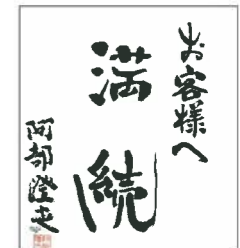 お客様へ
満続
阿部瑩走